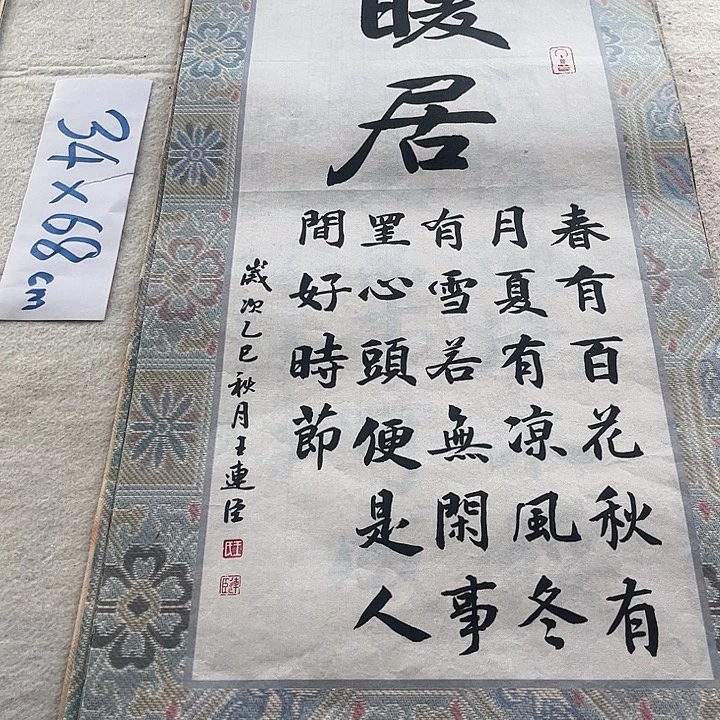 暖居
春有百花秋有
月夏有凉風冬
有雪若無閑事
罣心頭便是人
間好時節
歲次乙巳秋月王連臣
34×68cm